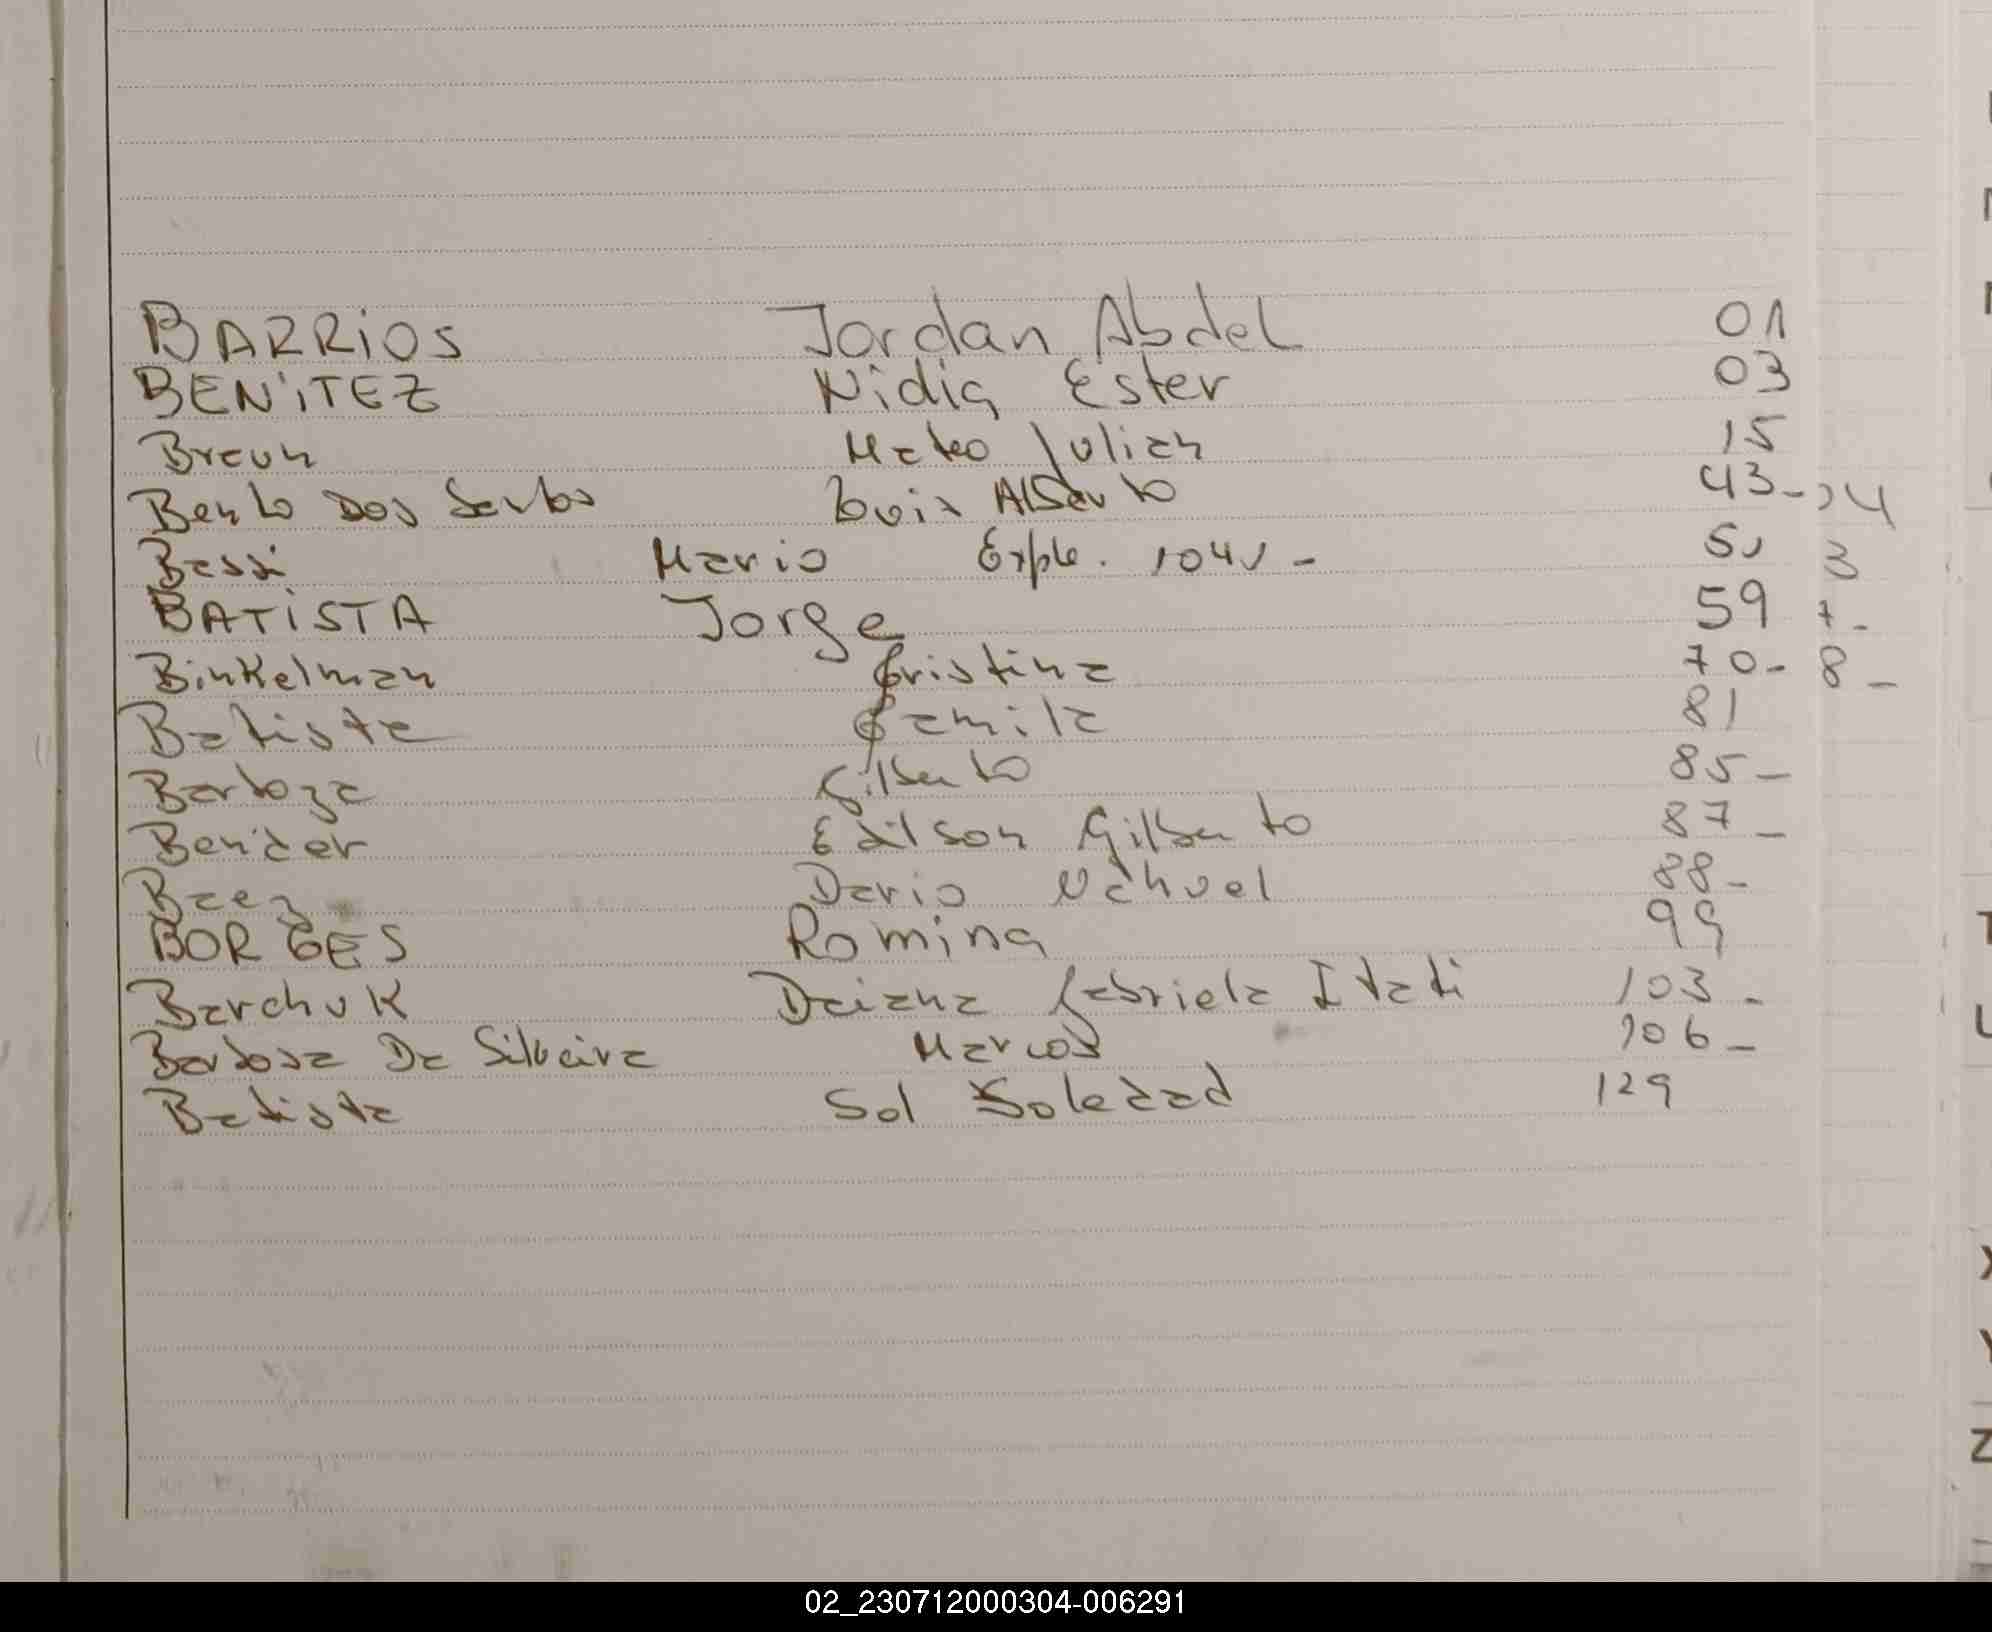 BARRIOS Jordan Abdel 01
BENiTEZ Nidia Ester 03
Braun Mateo Julian 15
Bento Dos Santos Luis Alberto 43-
Bassi Mario Expte. 1041- 51 3
BATiSTA Jorge 59 7-
Binkelman Cristina 70- 8-
Batista Camila 81
Barboza Gilberto 85-
Benider Edilson Gilberto 87-
Baez Dario Nahuel 88-
BORGES Romina 99
Barchuk Daiana Gabriela Itati 103-
Barbosa Da Silveira Marcos 106-
Batista Sol Soledad 129
T
U
X
Y
Z
02_230712000304-006291